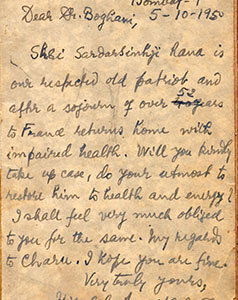 Bombay-1
Dear Dr. Boghani, 5-10-1950
Shri Sardarsinhji Rana is
our respected old patriot and
52
after a sojourn of over years
to France returns home with
impaired health. Will you kindly
take up case, do your utmost to
restore him to health and energy?
I shall feel very much obliged
to you for the same. My regards
to Charu. I hope you are fine.
Very truly yours,